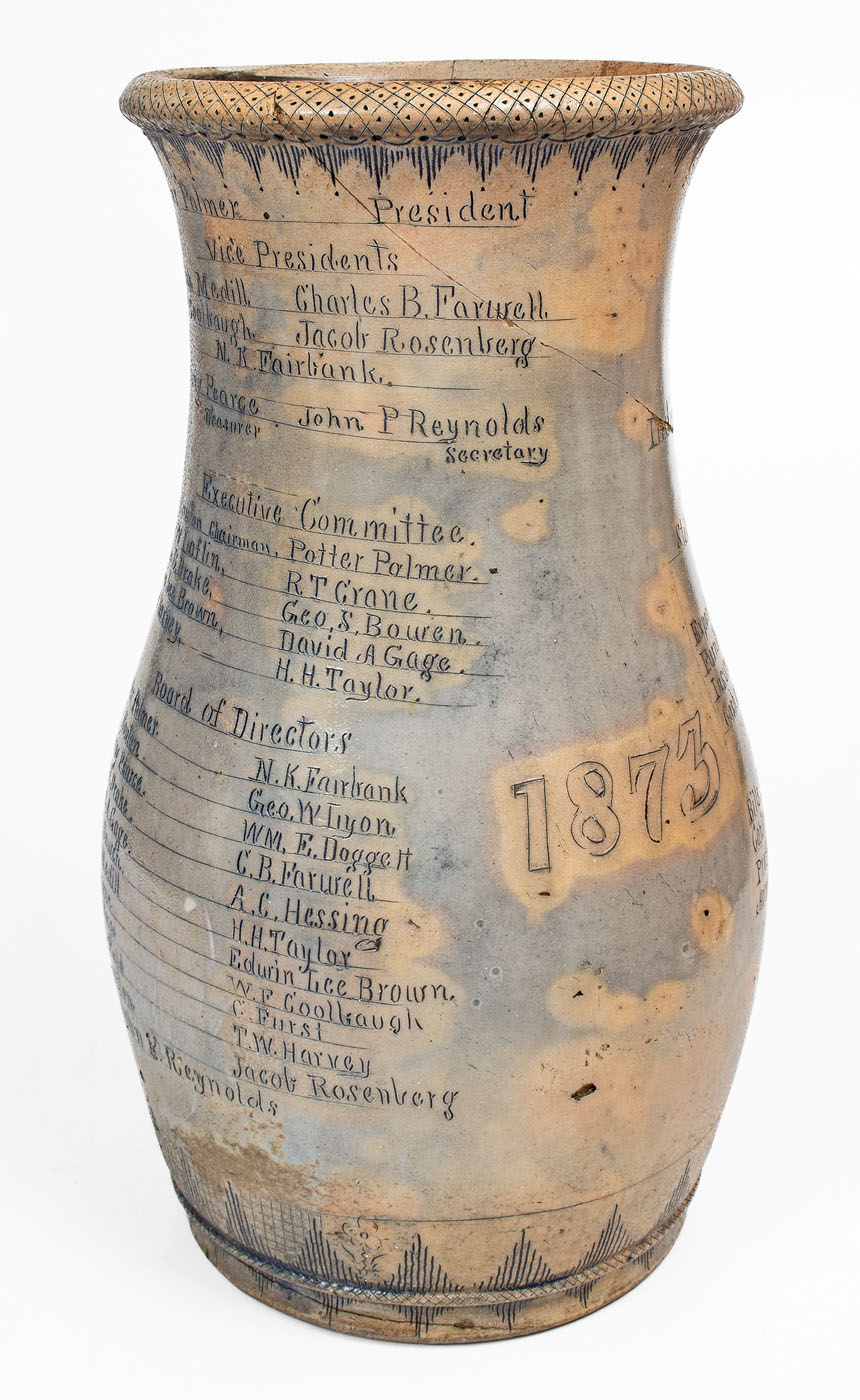 Palmer President
Vice Presidents
Medill Charles B. Farwell
Coolbaugh Jacob Rosenberg
N. K. Fairbank.
Pearce John P Reynolds
Treasurer Secretary
Executive Committee.
Chairman, Potter Palmer.
Laflin, R T Crane.
Drake, Geo. S. Bowen.
Brown, David A Gage.
H. H. Taylor.
Board of Directors
N. K. Fairbank
Geo. W Lyon
Pearce. WM. E. Doggett
C. B. Farwell
Gage. A. C. Hessing
H. H. Taylor
Edwin Lee Brown.
W. F Coolbaugh
C. Furst
T. W. Harvey
Jacob Rosenberg
Reynolds
1873